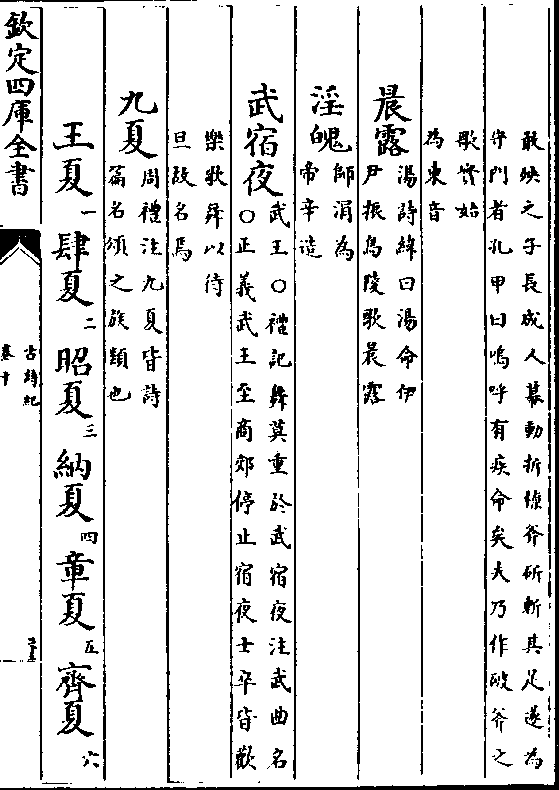 敢殃之子長成人幕動折橑斧斫斬其足遂為
守門者孔甲曰嗚呼有疾命矣夫乃作破斧之
歌實始
為東音
晨露
湯詩緯曰湯命伊
尹振鳥陵歌晨露
淫魄
師涓為
帝辛造
武宿夜
武王○禮記舞莫重於武宿夜注武曲名
○正義武王至商郊停止宿夜士卒皆歡
樂歌舞以待
旦故名焉
九夏
周禮注九夏皆詩
篇名頌之族類也
王夏一肆夏二昭夏三納夏四章夏五齊夏六
欽定四庫全書
古詩紀
卷十